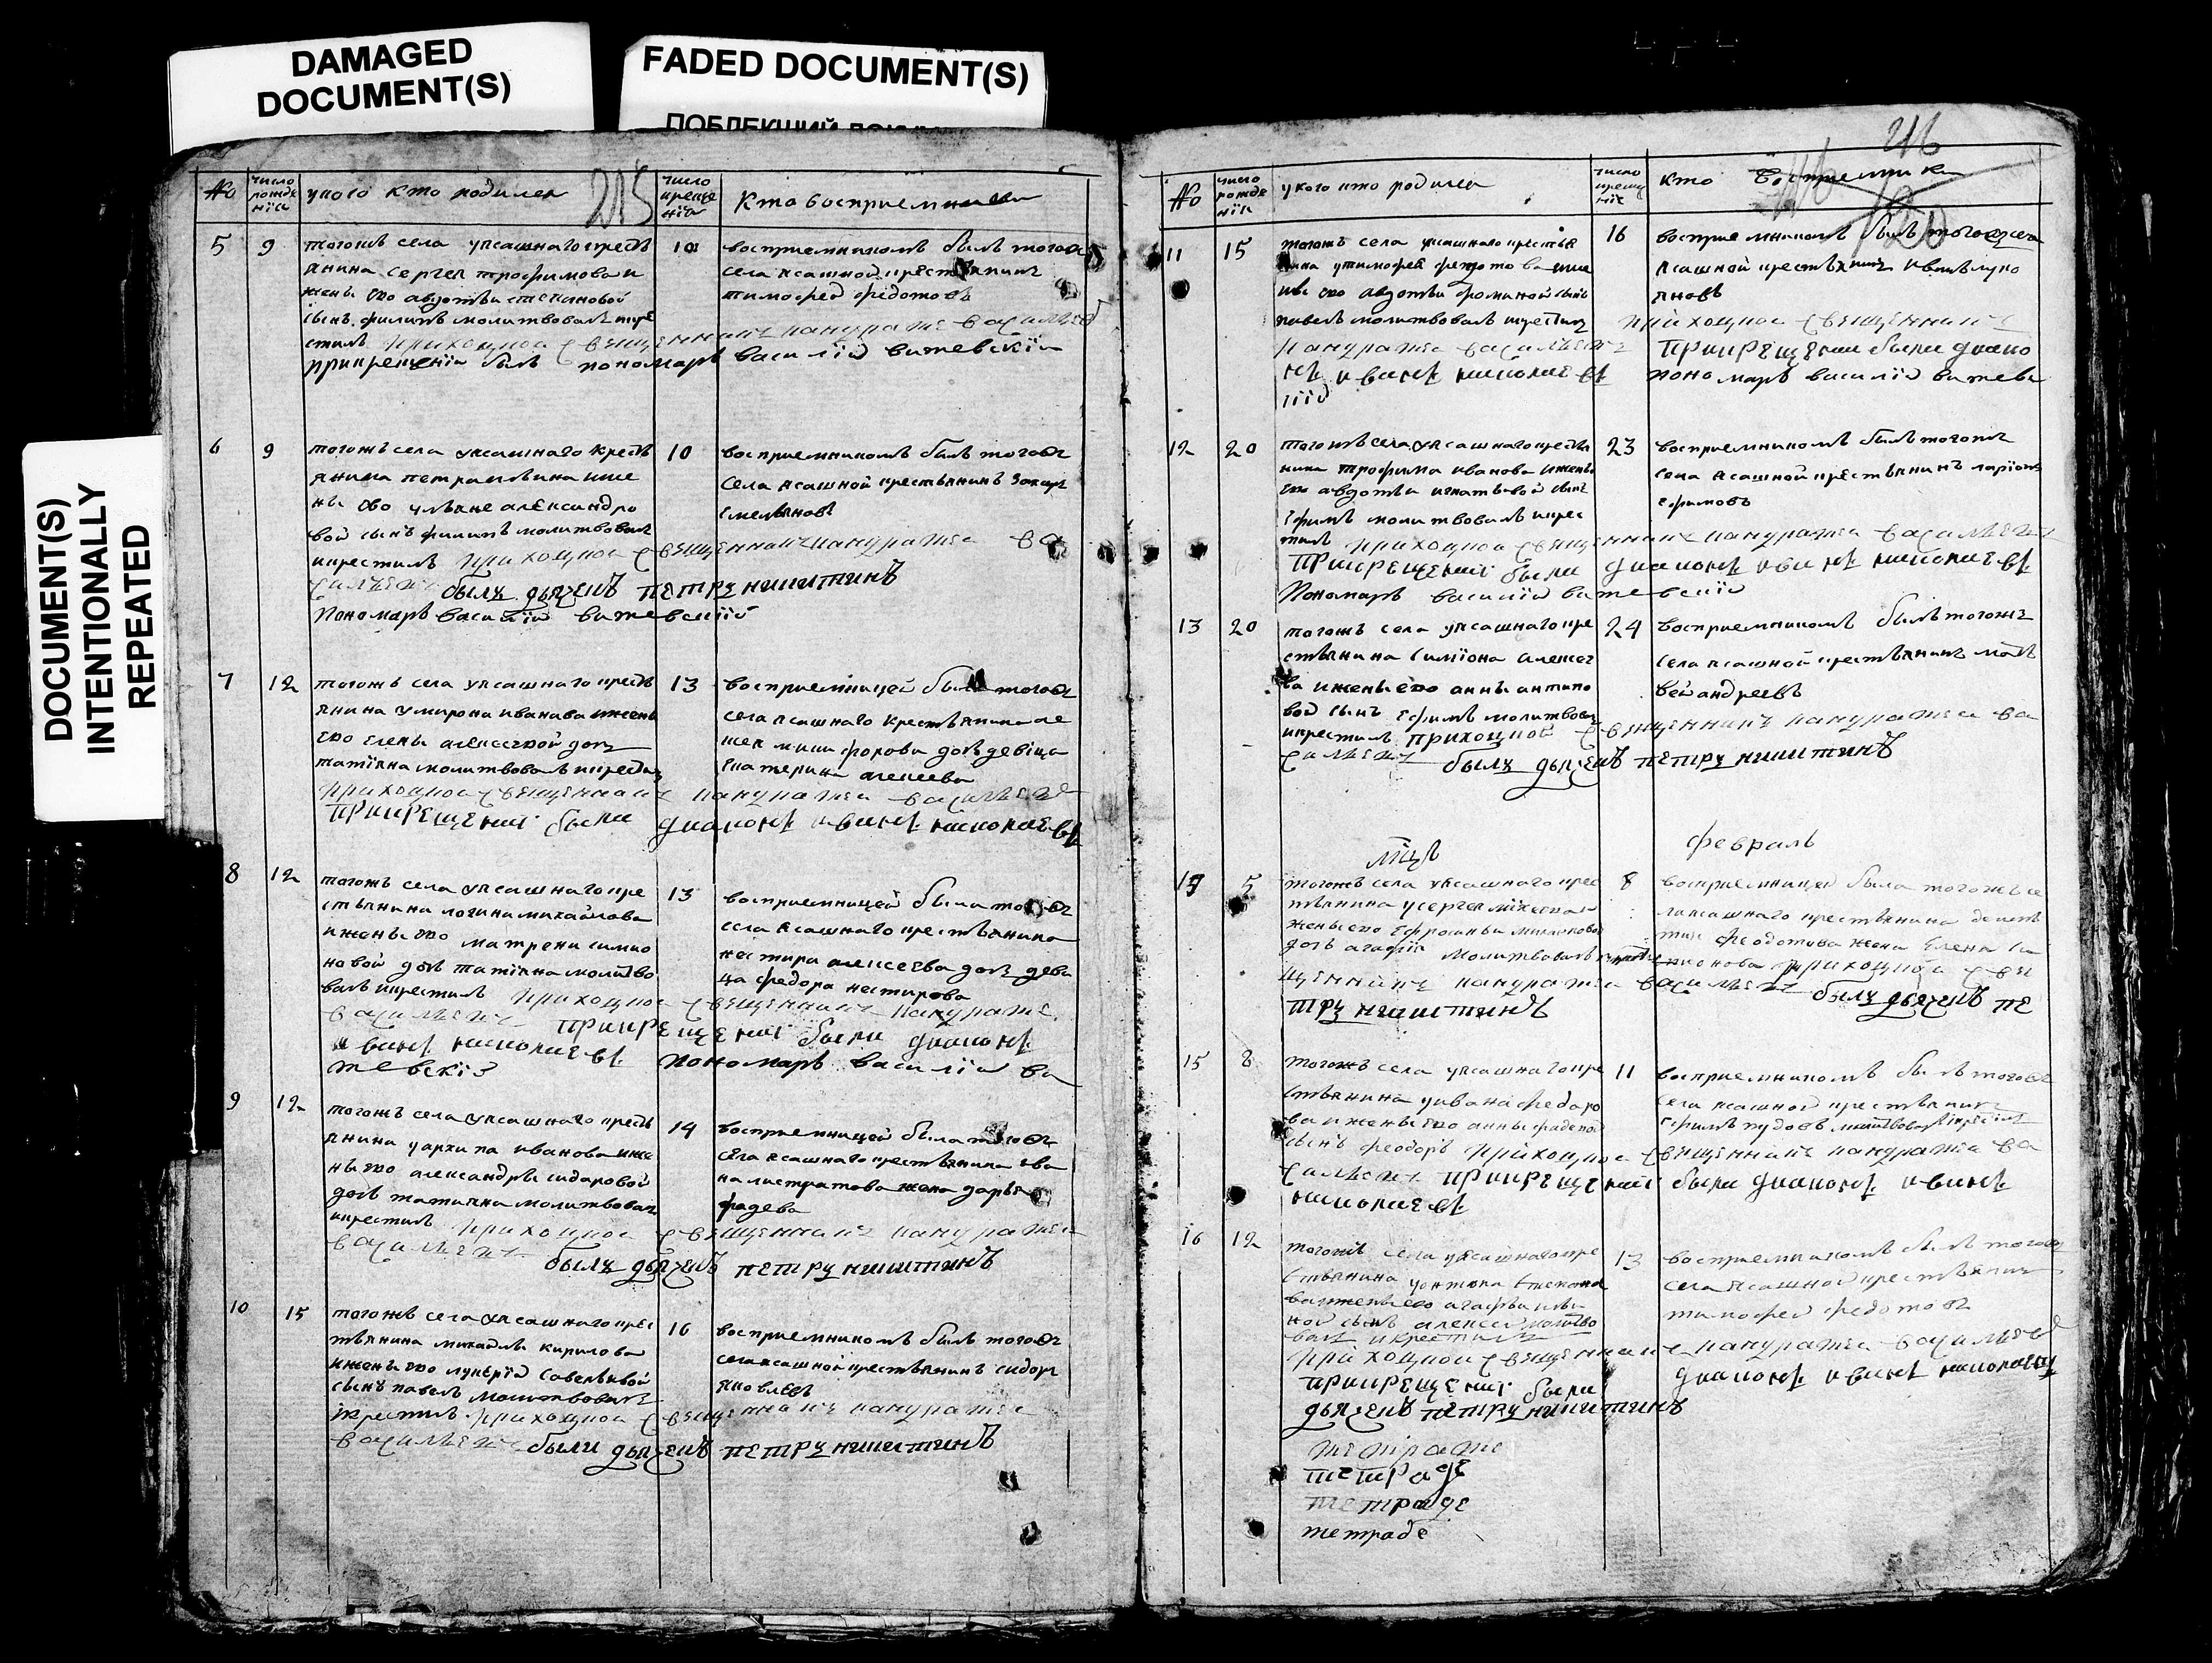 DAMAGED
DOCUMENT(S)
FADED DOCUMENT(S)
DOCUMENT(S)
INTENTIONALLY
REPEATED
215
№ число рожде нїя у кого кто родился число креще нїя Кто восприемники
5 9 10
тогожъ села уясашнаго кресть
янина сергея трофимова и
жены ево авдотьи степановой
сынъ филипъ молитвовалъ и кре
стилъ приходной священникъ панкратей васильевъ
прикрещенїи былъ пономаръ василїй витевскїй
восприемникомъ былъ тогожъ
села ясашной крестьянинъ
тимофей федотовъ
6 9 10
тогожъ села уясашнаго кресть
янина петра ильина и же
ны ево ульяне александро
вой сынъ филипъ молитвовалъ
и крестилъ приходной священникъ панкратей ва
сильевъ былъ дьячекъ петръ никитинъ
пономаръ василїй витевскїй
восприемникомъ былъ тогожъ
села ясашной крестьянинъ захаръ
емельяновъ
7 12 13
тогожъ села уясашнаго кресть
янина умирона иванова и жены
ево елены алексеевой дочь
татїяна молитвовалъ и крестилъ
приходной священникъ панкратей васильевъ
прикрещенїи были диаконъ иванъ николаевъ
восприемницей была тогожъ
села ясашнаго крестьянина але
ксея дочь девица
екатерина алексеева
8 12 13
тогожъ села уясашнаго кре
стьянина логина михайлова
и жены ево матрены симио
новой дочь татїяна молитво
валъ и крестилъ приходной священникъ панкратей
васильевъ прикрещенїи были диаконъ
иванъ николаевъ пономаръ василїй ви
тевскїй
восприемницей была тогожъ
села ясашнаго крестьянина
нестира алексеева дочь деви
ца федора нестирова
9 12 14
тогожъ села уясашнаго кресть
янина уархипа иванова и же
ны ево александры сидоровой
дочь татияна молитвовалъ
и крестилъ приходной священникъ панкратей
васильевъ былъ дьячекъ петръ никитинъ
восприемницей была тогожъ
села ясашнаго крестьянина ива
на листратова жена дарья
фадева
10 15 16
тогожъ села уясашнаго крес
тьянина михаилы кирилова
и жены ево лукерїи савельевой
сынъ павелъ молитвовалъ
и крестилъ приходной священникъ панкратей
васильевъ были дьячекъ петръ никитинъ
восприемникомъ былъ тогожъ
села ясашной крестьянинъ сидоръ
яковлевъ
216
№ число рожде нїя у кого кто родился число креще нїя кто восприемники
11 15 16
тогожъ села уясашнаго крестья
нина утимофея федотова и же
ны ево авдотьи фоминой сынъ
павелъ молитвовалъ и крестилъ приходной священникъ
панкратей васильевъ прикрещенїи были диако
нъ иванъ николаевъ пономаръ василїй витевс
кїй
восприемникомъ былъ тогожъ села
ясашной крестьянинъ иванъ луко
яновъ
12 20 23
тогожъ села уясашнаго крестья
нина трофима иванова и жены
ево авдотьи игнатьевой сынъ
ефимъ молитвовалъ и крес
тилъ приходной священникъ панкратей васильевъ
прикрещенїи были диаконъ иванъ николаевъ
пономаръ василїй витевскїй
восприемникомъ былъ тогожъ
села ясашной крестьянинъ ларїонъ
ефимовъ
13 20 24
тогожъ села уясашнаго кре
стьянина симїона алексее
ва и жены ево анны антипо
вой сынъ ефимъ молитвовалъ
и крестилъ приходной священникъ панкратей ва
сильевъ былъ дьячекъ петръ никитинъ
восприемникомъ былъ тогожъ
села ясашной крестьянинъ мать
вей андреевъ
мцъ февраль
5 8
тогожъ села уясашнаго крес
тьянина усергея
жены ево ефросиньи
дочь агафїя молитвовалъ приходной свя
щенникъ панкратей васильевъ былъ дьячекъ пе
тръ никитинъ
восприемницей была тогожъ се
ла ясашнаго крестьянина
феодотова жена елена си
мионова
15 8 11
тогожъ села уясашнаго кре
стьянина уивана федоро
ва и жены ево анны
сынъ феодоръ приходной священникъ панкратей ва
сильевъ прикрещенїи были диаконъ иванъ
николаевъ
восприемникомъ былъ тогожъ
села ясашной крестьянинъ
ефимъ молитвовалъ и крестилъ
16 12 13
тогожъ села уясашнаго кре
стьянина уантона степано
ва и жены ево агафьи
ной сынъ алексей молитво
валъ и крестилъ
приходной священникъ панкратей васильевъ
прикрещенїи были диаконъ иванъ николаевъ
дьячекъ петръ никитинъ
восприемникомъ былъ тогожъ
села ясашной крестьянинъ
тимофей федотовъ
тетраде
тетраде
тетраде